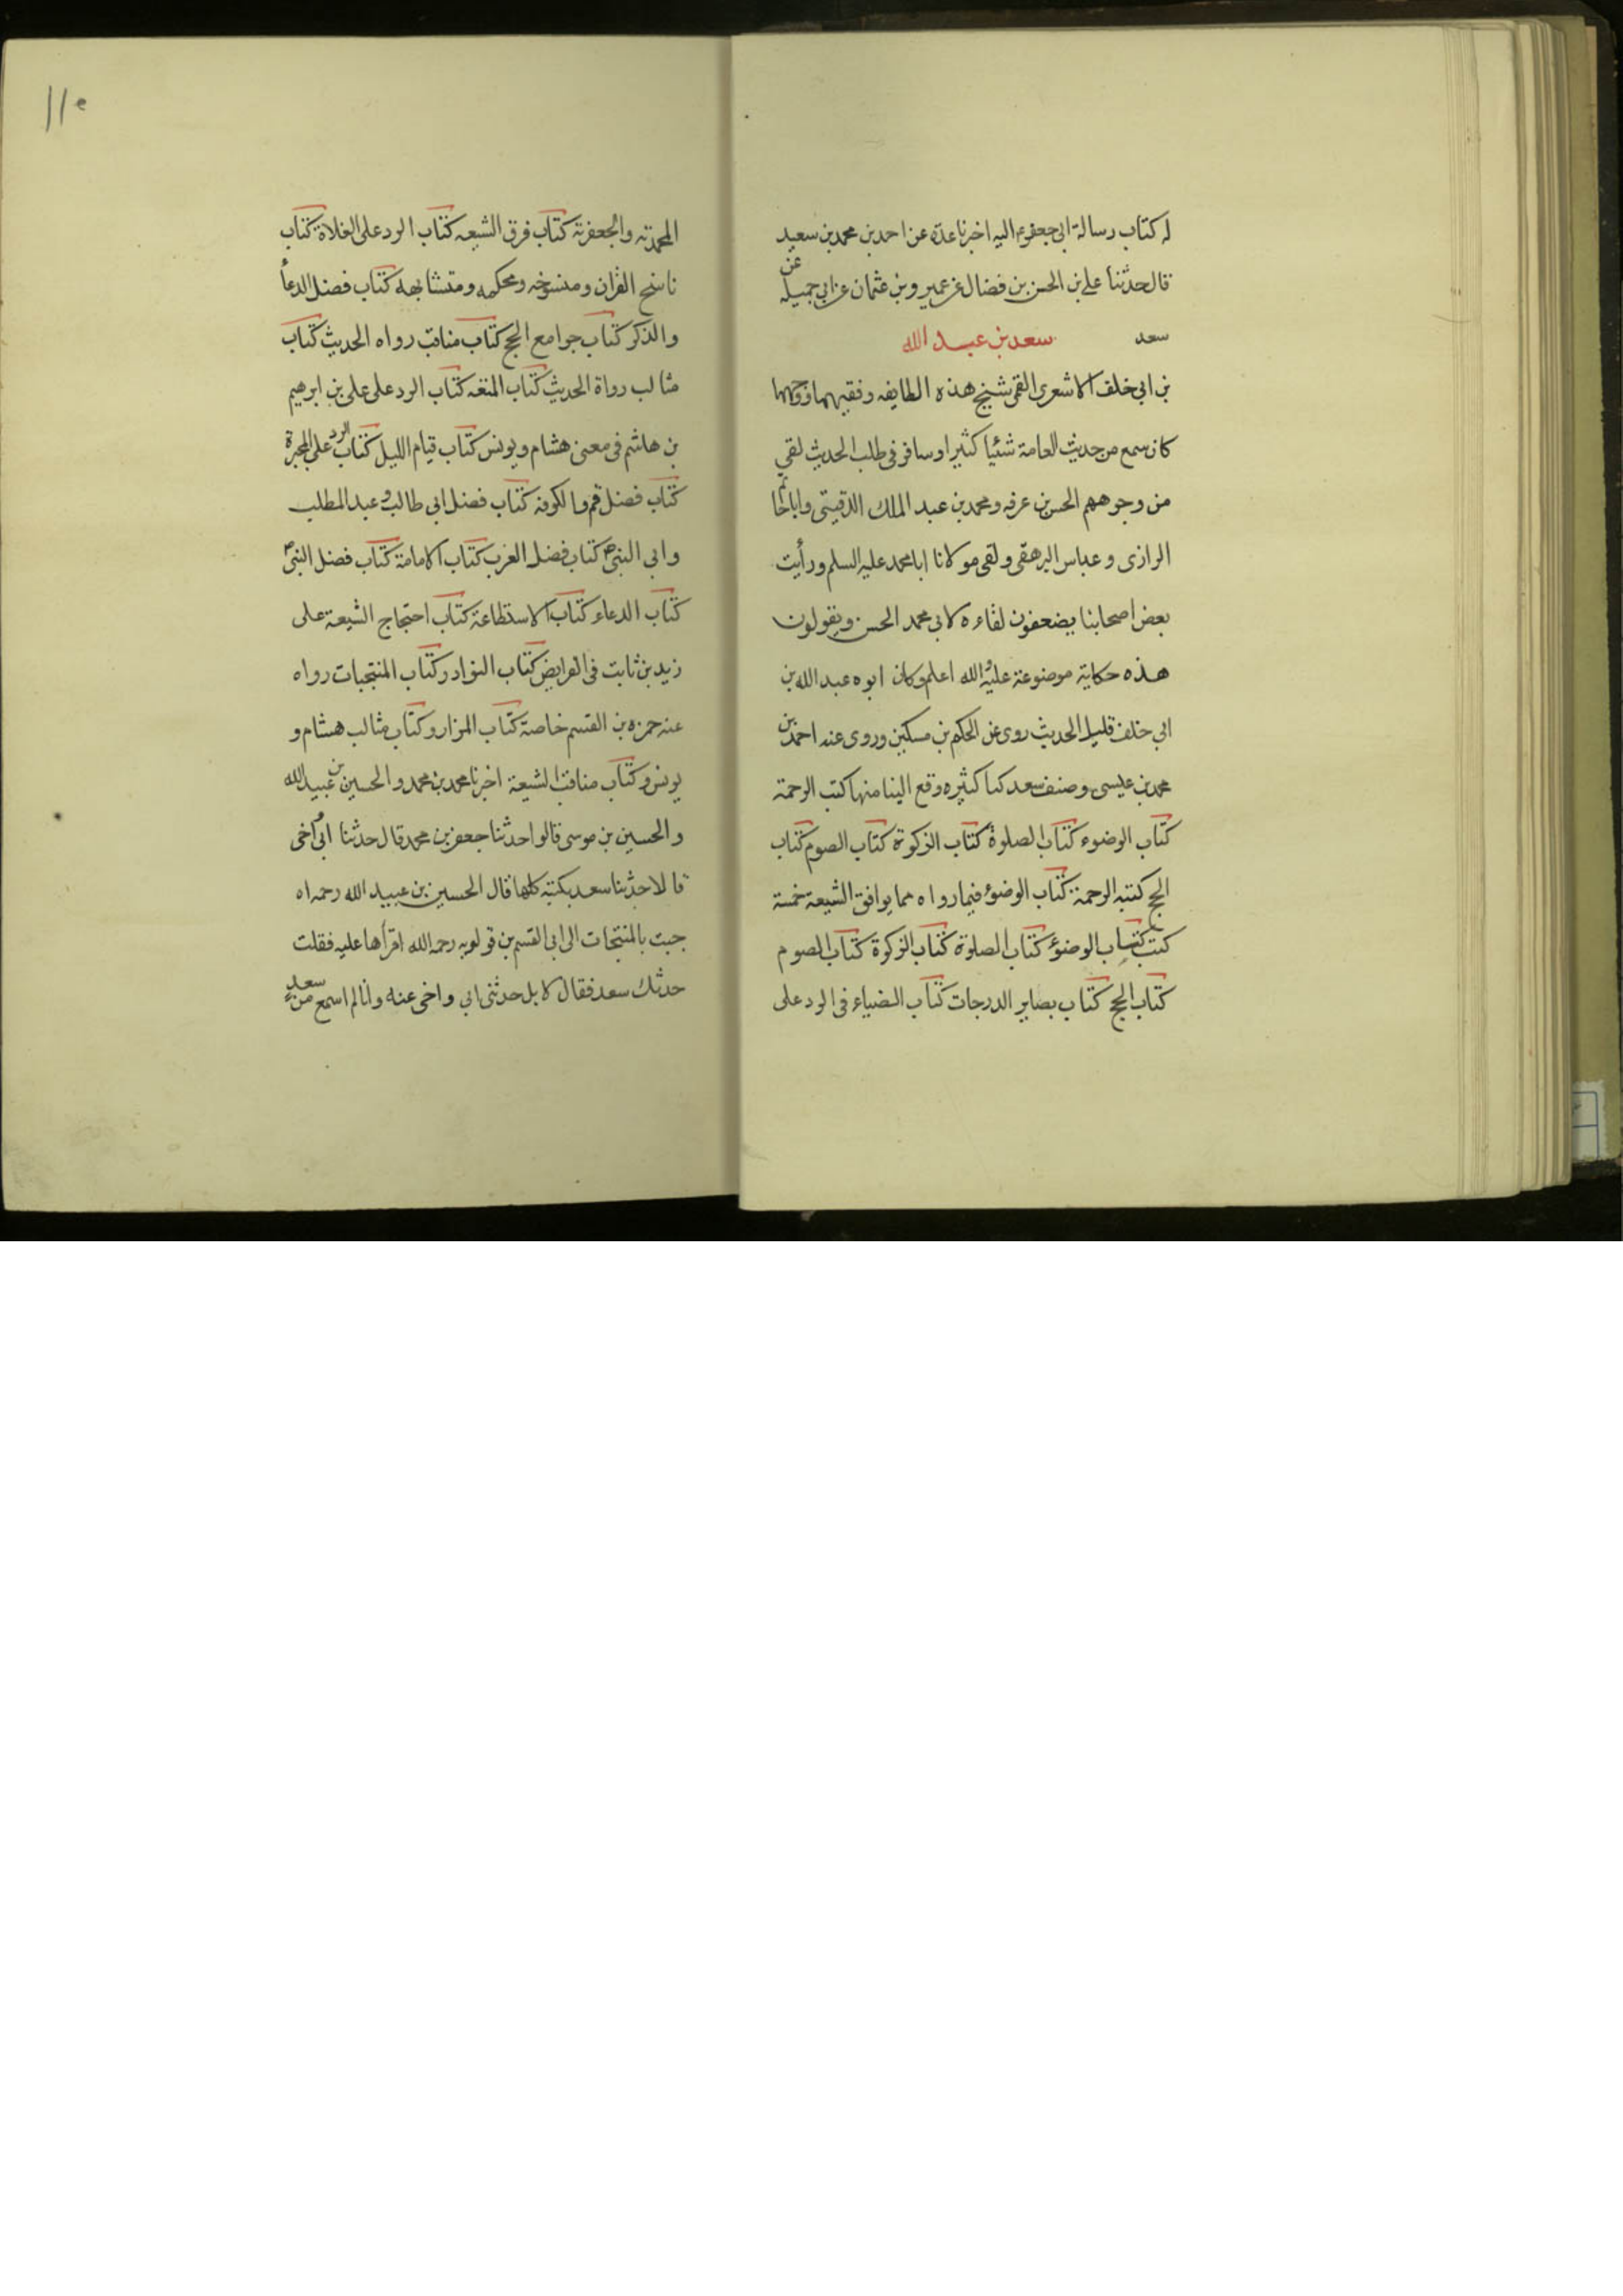 له كتاب رسالة ابى جعفر ع اليه اخبرنا عدة عن احمد بن محمد بن سعيد
قال حدثنا على بن الحسن بن فضال عن عمرو بن عثمان عن ابى جميله عن
سعد سعد بن عبد الله
بن ابى خلف الاشعرى القمى شيخ هذه الطايفه وفقيهها ووجهها
كان سمع من حديث العامة شئيا كثيرا وسافر فى طلب الحديث لقى
من وجوههم الحسن بن عرفه ومحمد بن عبد الملك الدقيقى واباحاتم
الرازى وعباس البرهقى ولقى مولانا ابا محمد عليه السلم ورأيت
بعض اصحابنا يضعفون لقاءه لابى محمد الحسن ويقولون
هذه حكاية موضوعة عليه والله اعلم وكان ابوه عبد الله بن
ابى خلف قليل الحديث روى عن الحكم بن مسكين وروى عنه احمد بن
محمد بن عيسى وصنف سعد كتبا كثيره وقع الينا منها كتب الرحمة
كتاب الوضوء كتاب الصلوة كتاب الزكوة كتاب الصوم كتاب
الحج كتبه الرحمة كتاب الوضوء فيما رواه مما يوافق الشيعة خمسة
كتب كتاب الوضوء كتاب الصلوة كتاب الزكوة كتاب الصوم
كتاب الحج كتاب بصاير الدرجات كتاب الضياء فى الرد على
١١٥
المحمدية والجعفرية كتاب فرق الشيعه كتاب الرد على الغلاة كتاب
ناسخ القران ومنسوخه ومحكمه ومتشابهه كتاب فضل الدعأ
والذكر كتاب جوامع الحج كتاب مناقب رواه الحديث كتاب
مثالب رواة الحديث كتاب المتعه كتاب الرد على على بن ابرهيم
بن هاشم فى معنى هشام ويونس كتاب قيام الليل كتاب الرد على المجبرة
كتاب فضل قم والكوفه كتاب فضل ابى طالب وعبد المطلب
وابى النبى ص كتاب فضل العرب كتاب الامامة كتاب فضل النبى ص
كتاب الدعاء كتاب الاستطاعة كتاب احتجاج الشيعة على
زيد بن ثابت فى الفرايض كتاب النوادر كتاب المنتجبات رواه
عنه حمزه بن القسم خاصة كتاب المزار وكتاب مثالب هشام و
يونس وكتاب مناقب الشيعة اخبرنا محمد بن محمد والحسين بن عبيد الله
والحسين بن موسى قالوا حدثنا جعفر بن محمد قال حدثنا ابى واخى
قالا حدثنا سعد بكتبه كلها قال الحسين بن عبيد الله رحمه اه
جبت بالمنتخبات الى ابى القسم بن قولويه رحمه الله اقرأها عليه فقلت
حدثك سعد فقال لا بل حدثنى ابى واخى عنه وانا لم اسمع من سعد